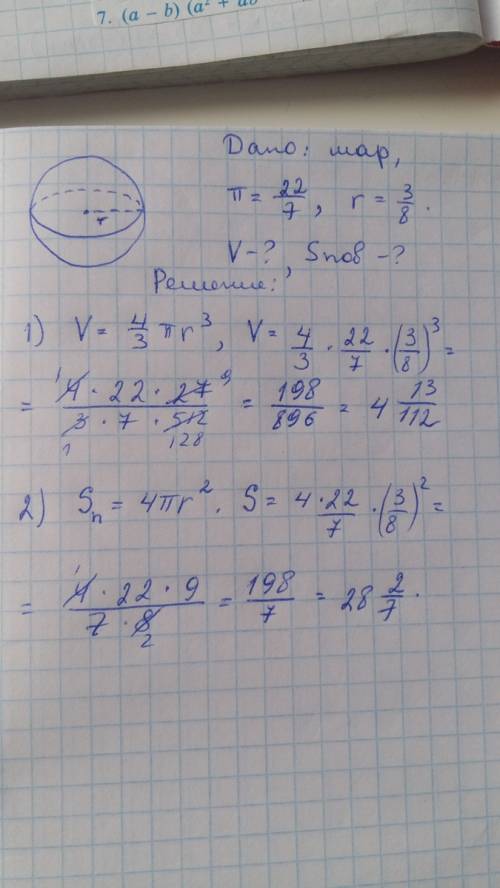 7. (a − b) (a² + ab
Дано: шар,
π = 22/7, r = 3/8.
V - ?, Sпов - ?
r
Решение:
1) V = 4/3 πr³, V = 4/3 · 22/7 · (3/8)³ =
= 4 · 22 · 27 / 3 · 7 · 512 = 198/896 = 4 13/112
1 9
1 128
2) Sп = 4πr². S = 4 · 22/7 · (3/8)² =
= 4 · 22 · 9 / 7 · 8 = 198/7 = 28 2/7.
1
2